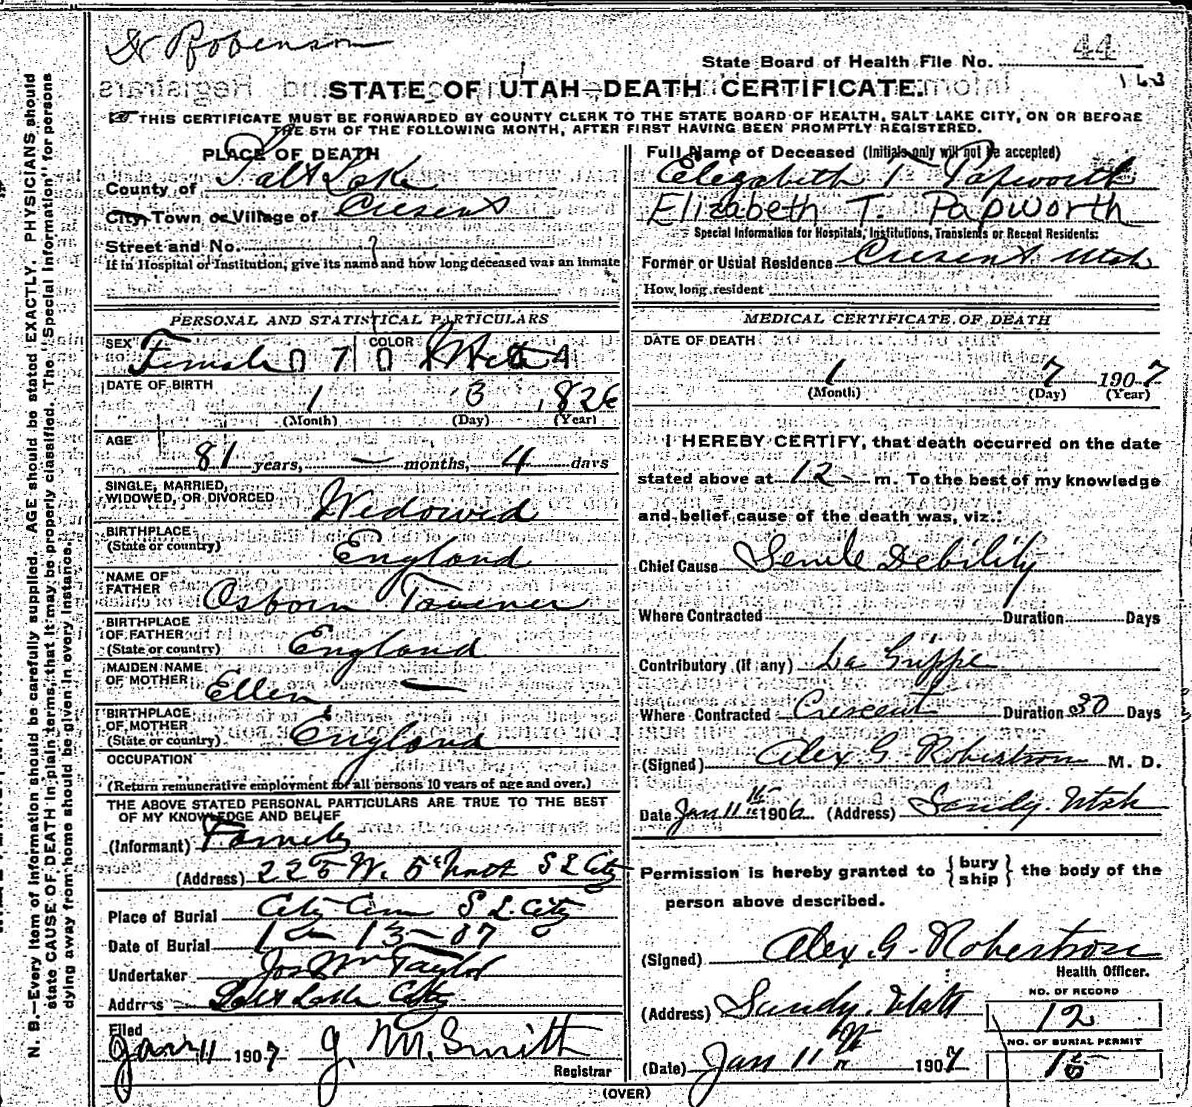 Dr Robenson
State Board of Health File No. 44
163
STATE OF UTAH—DEATH CERTIFICATE.
THIS CERTIFICATE MUST BE FORWARDED BY COUNTY CLERK TO THE STATE BOARD OF HEALTH, SALT LAKE CITY, ON OR BEFORE
THE 5TH OF THE FOLLOWING MONTH, AFTER FIRST HAVING BEEN PROMPTLY REGISTERED.
PLACE OF DEATH
County of Salt Lake
City, Town or Village of Cresent
Street and No. ?
If in Hospital or Institution, give its name and how long deceased was an inmate
PERSONAL AND STATISTICAL PARTICULARS
SEX Female COLOR White
0 7 0 0 4
DATE OF BIRTH
1 3 1826
(Month) (Day) (Year)
AGE
81 years, — months, 4 days
SINGLE, MARRIED,
WIDOWED, OR DIVORCED Widowed
BIRTHPLACE
(State or country) England
NAME OF
FATHER Osborn Tovener
BIRTHPLACE
OF FATHER
(State or country) England
MAIDEN NAME
OF MOTHER Ellen —
BIRTHPLACE
OF MOTHER
(State or country) England
OCCUPATION
(Return remunerative employment for all persons 10 years of age and over.)
THE ABOVE STATED PERSONAL PARTICULARS ARE TRUE TO THE BEST
OF MY KNOWLEDGE AND BELIEF
(Informant) Family
(Address) 225 W. 5th North S L City
Place of Burial City Cem S L. City
Date of Burial 1 - 13 - 07
Undertaker Jos Wm Taylor
Address Salt Lake City
Filed
Jan 11 1907 J. M. Smith
Registrar
Full Name of Deceased (Initials only will not be accepted)
Elezabeth T. Papworth
Elizabeth T. Papworth
Special Information for Hospitals, Institutions, Transients or Recent Residents:
Former or Usual Residence Cresent Utah
How long resident
MEDICAL CERTIFICATE OF DEATH
DATE OF DEATH
1 7 1907
(Month) (Day) (Year)
I HEREBY CERTIFY, that death occurred on the date
stated above at 12 m. To the best of my knowledge
and belief cause of the death was, viz.:
Chief Cause Senile Debility
Where Contracted Duration Days
Contributory (if any) La Grippe
Where Contracted Crescent Duration 30 Days
(Signed) Alex G. Robertson M. D.
Date Jan 11th 1906 (Address) Sandy. Utah
Permission is hereby granted to {bury ship} the body of the
person above described.
(Signed) Alex. G. Robertson
Health Officer.
(Address) Sandy. Utah
NO. OF RECORD
12
NO. OF BURIAL PERMIT
(Date) Jan 11th 1907
(OVER)
N. B.—Every item of information should be carefully supplied. AGE should be stated EXACTLY. PHYSICIANS should
state CAUSE OF DEATH in plain terms, that it may be properly classified. The "Special Information" for persons
dying away from home should be given in every instance.